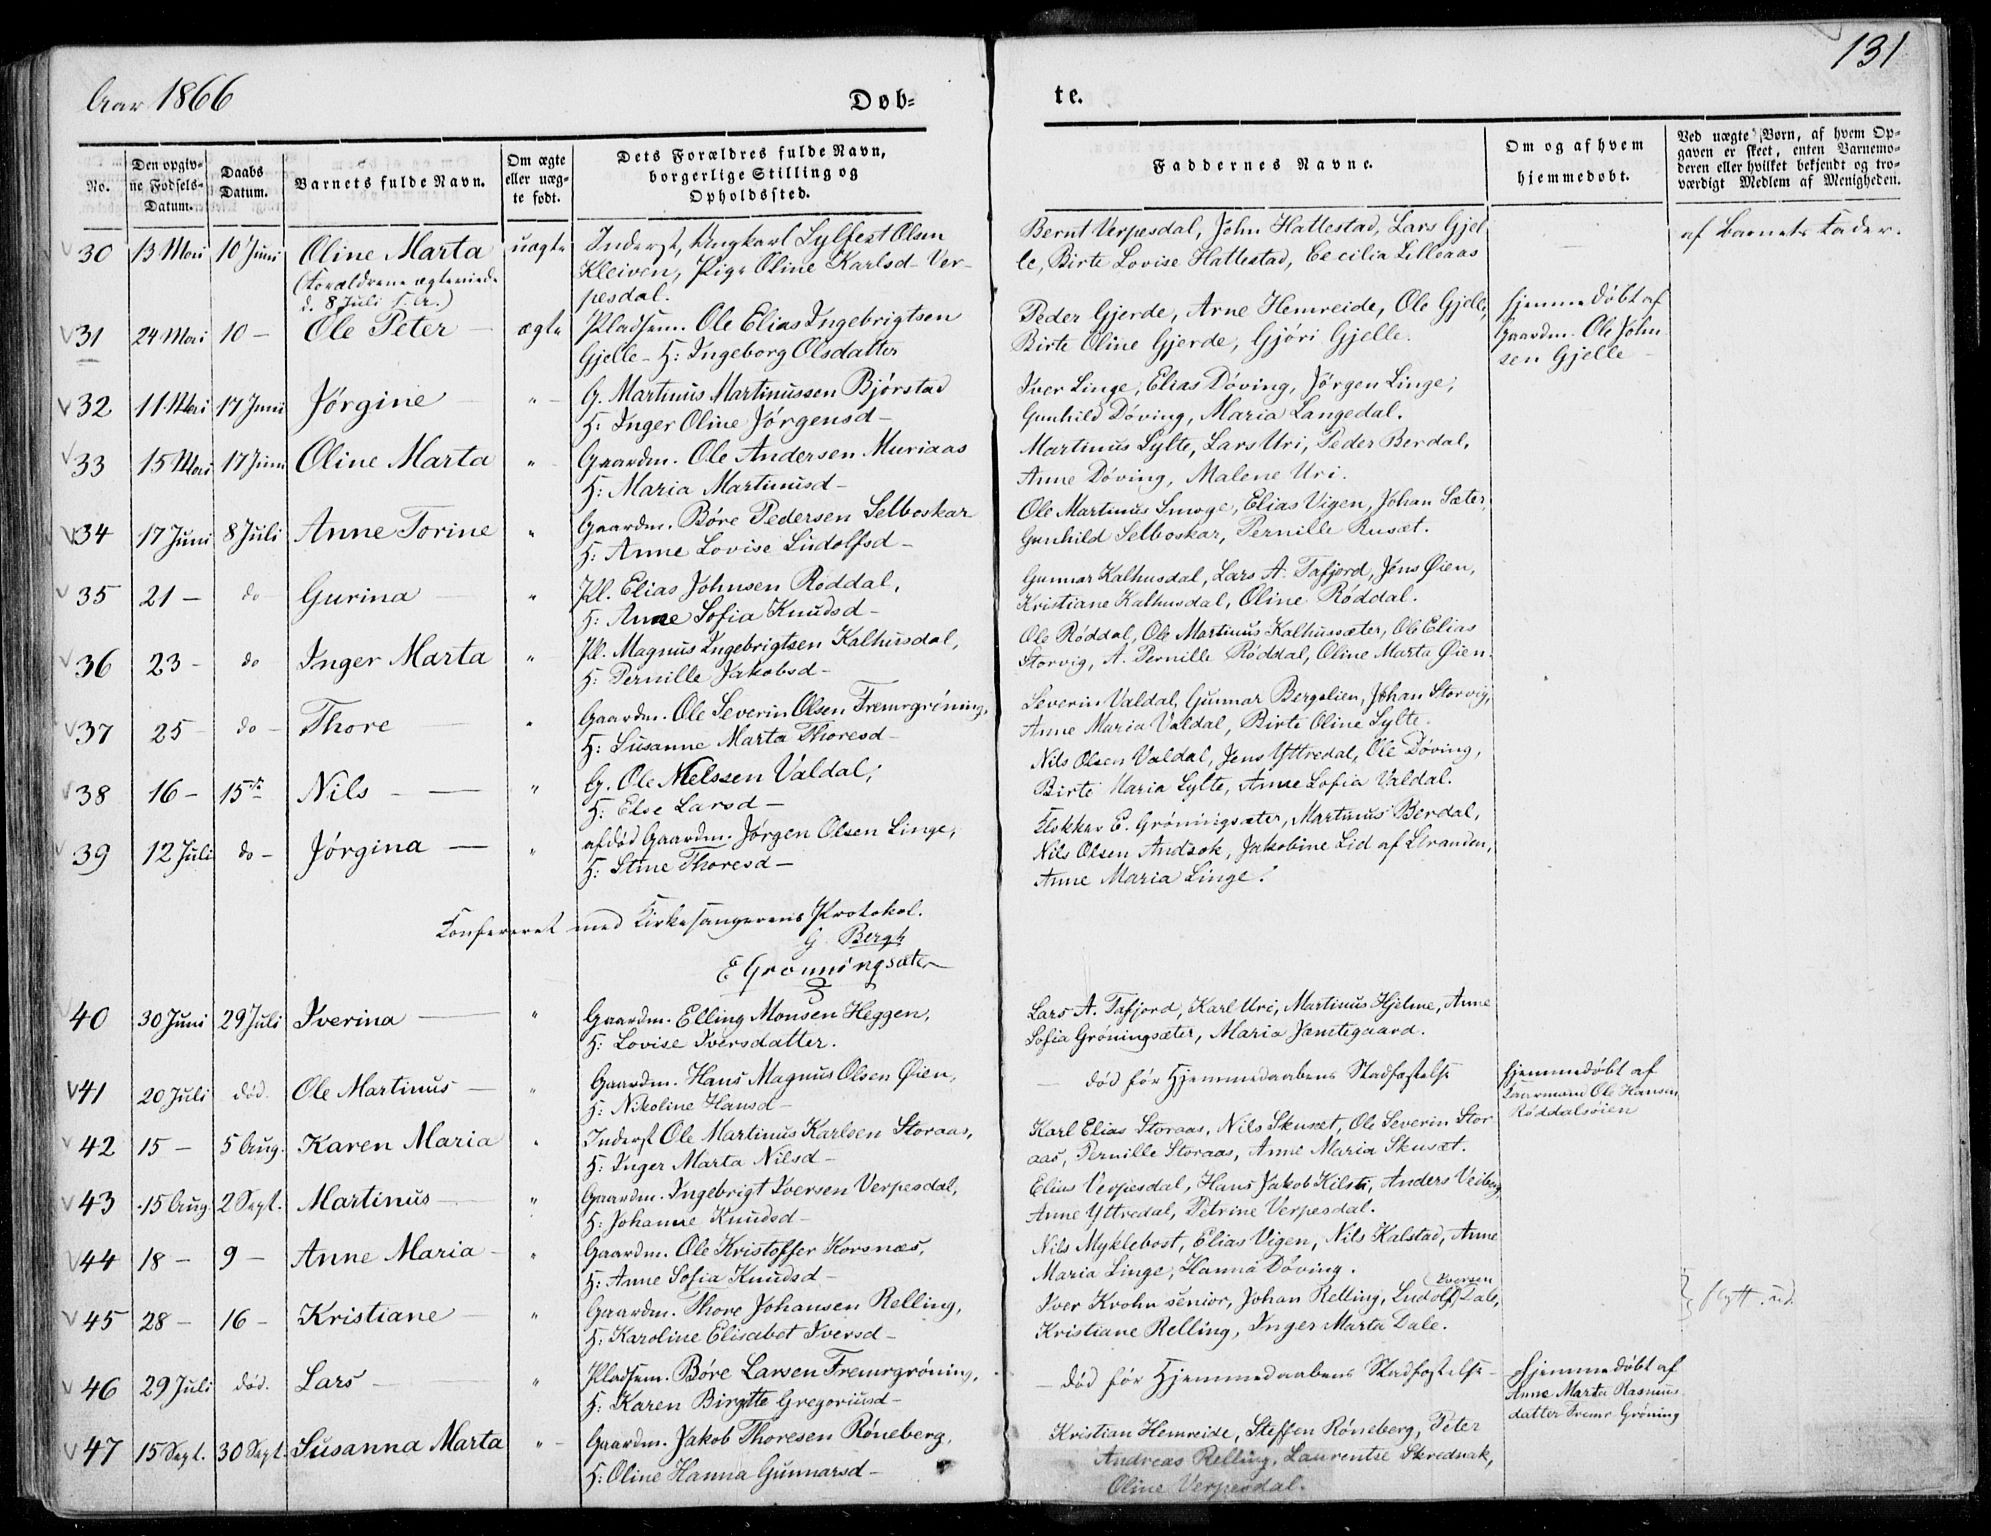 Aar 1866
Døb-
te.
131
No.
Den opgiv-
ne Fødsels-
Datum.
Daabs
Datum.
Barnets fulde Navn.
Om ægte
eller uæg-
te født.
Dets Forældres fulde Navn,
borgerlige Stilling og
Opholdssted.
Faddernes Navne.
Om og af hvem
hjemmedøbt.
Ved uægte Børn, af hvem Op-
gaven er skeet, enten Barnemo-
deren eller hvilket bekjendt og tro-
værdigt Medlem af Menigheden.
30 13 Mai 10 Juni Oline Marta uægte Inderst, Ungkarl Sylfest Olsen
Kleiven, Pige Oline Karlsd- Ver-
pesdal.
(Forældrene ægteviede
d. 8 Juli f. A.)
Bernt Verpesdal, John Hattestad, Lars Gjel
le, Birte Lovise Hattestad, Cecilia Lilleaas
af Barnets Fader.
31 24 Mai 10 - Ole Peter - ægte Pladsm. Ole Elias Ingebrigtsen
Gjelle - H: Ingeborg Olsdatter
Peder Gjerde, Arne Hemreide, Ole Gjelle,
Birte Oline Gjerde, Gjøri Gjelle.
Hjemmedøbt af
Gaardm. Ole John
sen Gjelle -
32 11 Mai 17 Juni Jørgine - " G. Martinus Martinussen Bjørstad
H: Inger Oline Jørgensd -
Iver Linge, Elias Døving, Jørgen Linge,
Gunhild Døving, Maria Langedal.
33 15 Mai 17 Juni Oline Marta " Gaardm. Ole Andersen Muriaas
H: Maria Martinusd -
Martinus Sylte, Lars Uri, Peder Berdal,
Anne Døving, Malene Uri.
34 17 Juni 8 Juli Anne Torine " Gaardm. Børe Pedersen Selboskar
H: Anne Lovise Ludolfsd -
Ole Martinus Smoge, Elias Vigen, Johan Sæter,
Gunhild Selboskar, Pernille Rusæt.
35 21 - do Gurina - " Pl. Elias Johnsen Røddal,
H: Anne Sofia Knudsd -
Gunnar Kalhusdal, Lars A. Tafjord, Jøns Øien,
Kristiane Kalhusdal, Oline Røddal.
36 23 - do Inger Marta " Pl. Magnus Ingebrigtsen Kalhusdal,
H: Pernille Jakobsd -
Ole Røddal, Ole Martinus Kalhussæter, Ole Elias
Storvig, A. Pernille Røddal, Oline Marta Øien.
37 25 - do - Thore - " Gaardm. Ole Severin Olsen Fremrgrøning,
H: Susanne Marta Thoresd -
Severin Valdal, Gunnar Bergslien, Johan Storvig,
Anne Maria Valdal, Birte Oline Sylte.
38 16 - 15de Nils - " G. Ole Nielssen Valdal,
H: Else Larsd -
Nils Olsen Valdal, Jens Yttredal, Ole Døving,
Birte Maria Sylte, Anne Sofia Valdal.
39 12 Juli do - Jørgina - " afdød Gaardm. Jørgen Olsen Linge,
H: Stine Thoresd -
Klokker E. Grøningsæter, Martinus Berdal,
Nils Olsen Andsok, Jakobine Lid af Stranden,
Anne Maria Linge.
Konfereret med Kirkesangerens Protokol.
G. Bergh
E Grønningsæter
40 30 Juni 29 Juli Iverina - " Gaardm. Elling Monsen Heggen,
H: Lovise Iversdatter.
Lars A. Tafjord, Karl Uri, Martinus Hjelme, Anne
Sofia Grøningsæter, Maria Jemtegaard.
41 20 Juli død. Ole Martinus - " Gaardm. Hans Magnus Olsen Øien,
H: Nikoline Hansd -
- død før Hjemmedaabens Stadfæstelse
Hjemmedøbt af
Gaarmand Ole Hansen
Røddalsøien
42 15 - 5 Aug. Karen Maria " Inderst Ole Martinus Karlsen Storaas,
H: Inger Marta Nilsd -
Karl Elias Storaas, Nils Skusæt, Ole Severin Stor-
aas, Pernille Storaas, Anne Maria Skusæt.
43 15 Aug. 2 Sept. Martinus - " Gaardm. Ingebrigt Iversen Verpesdal,
H: Johanne Knudsd -
Elias Verpesdal, Hans Jakob Kilsti, Anders Veiberg
Anne Yttredal, Petrine Verpesdal.
44 18 - 9 - Anne Maria - " Gaardm. Ole Kristoffer Korsnæs,
H: Anne Sofia Knudsd -
Nils Myklebost, Elias Vigen, Nils Kalstad, Anne
Maria Linge, Hanna Døving.
45 28 - 16 - Kristiane - " Gaardm. Thore Johansen Relling,
H: Karoline Elisabet Iversd -
Iver Krohn senior, Johan Relling, Ludolf Iversen Dale,
Kristiane Relling, Inger Marta Dale.
flytt. ud.
46 29 Juli død. Lars - " Pladsem. Børe Larsen Fremrgrøning,
H: Karen Birgitte Gregoriusd -
- død før Hjemmedaabens Stadfæstelse -
Hjemmedøbt af
Anne Marta Rasmus
datter Fremr Grøning
47 15 Sept. 30 Sept. Susanna Marta " Gaardm. Jakob Thoresen Røneberg,
H: Oline Hanna Gunnarsd -
Kristian Hemreide, Steffen Røneberg, Peter
Andreas Relling, Laurentse Skrednak,
Oline Verpesdal.